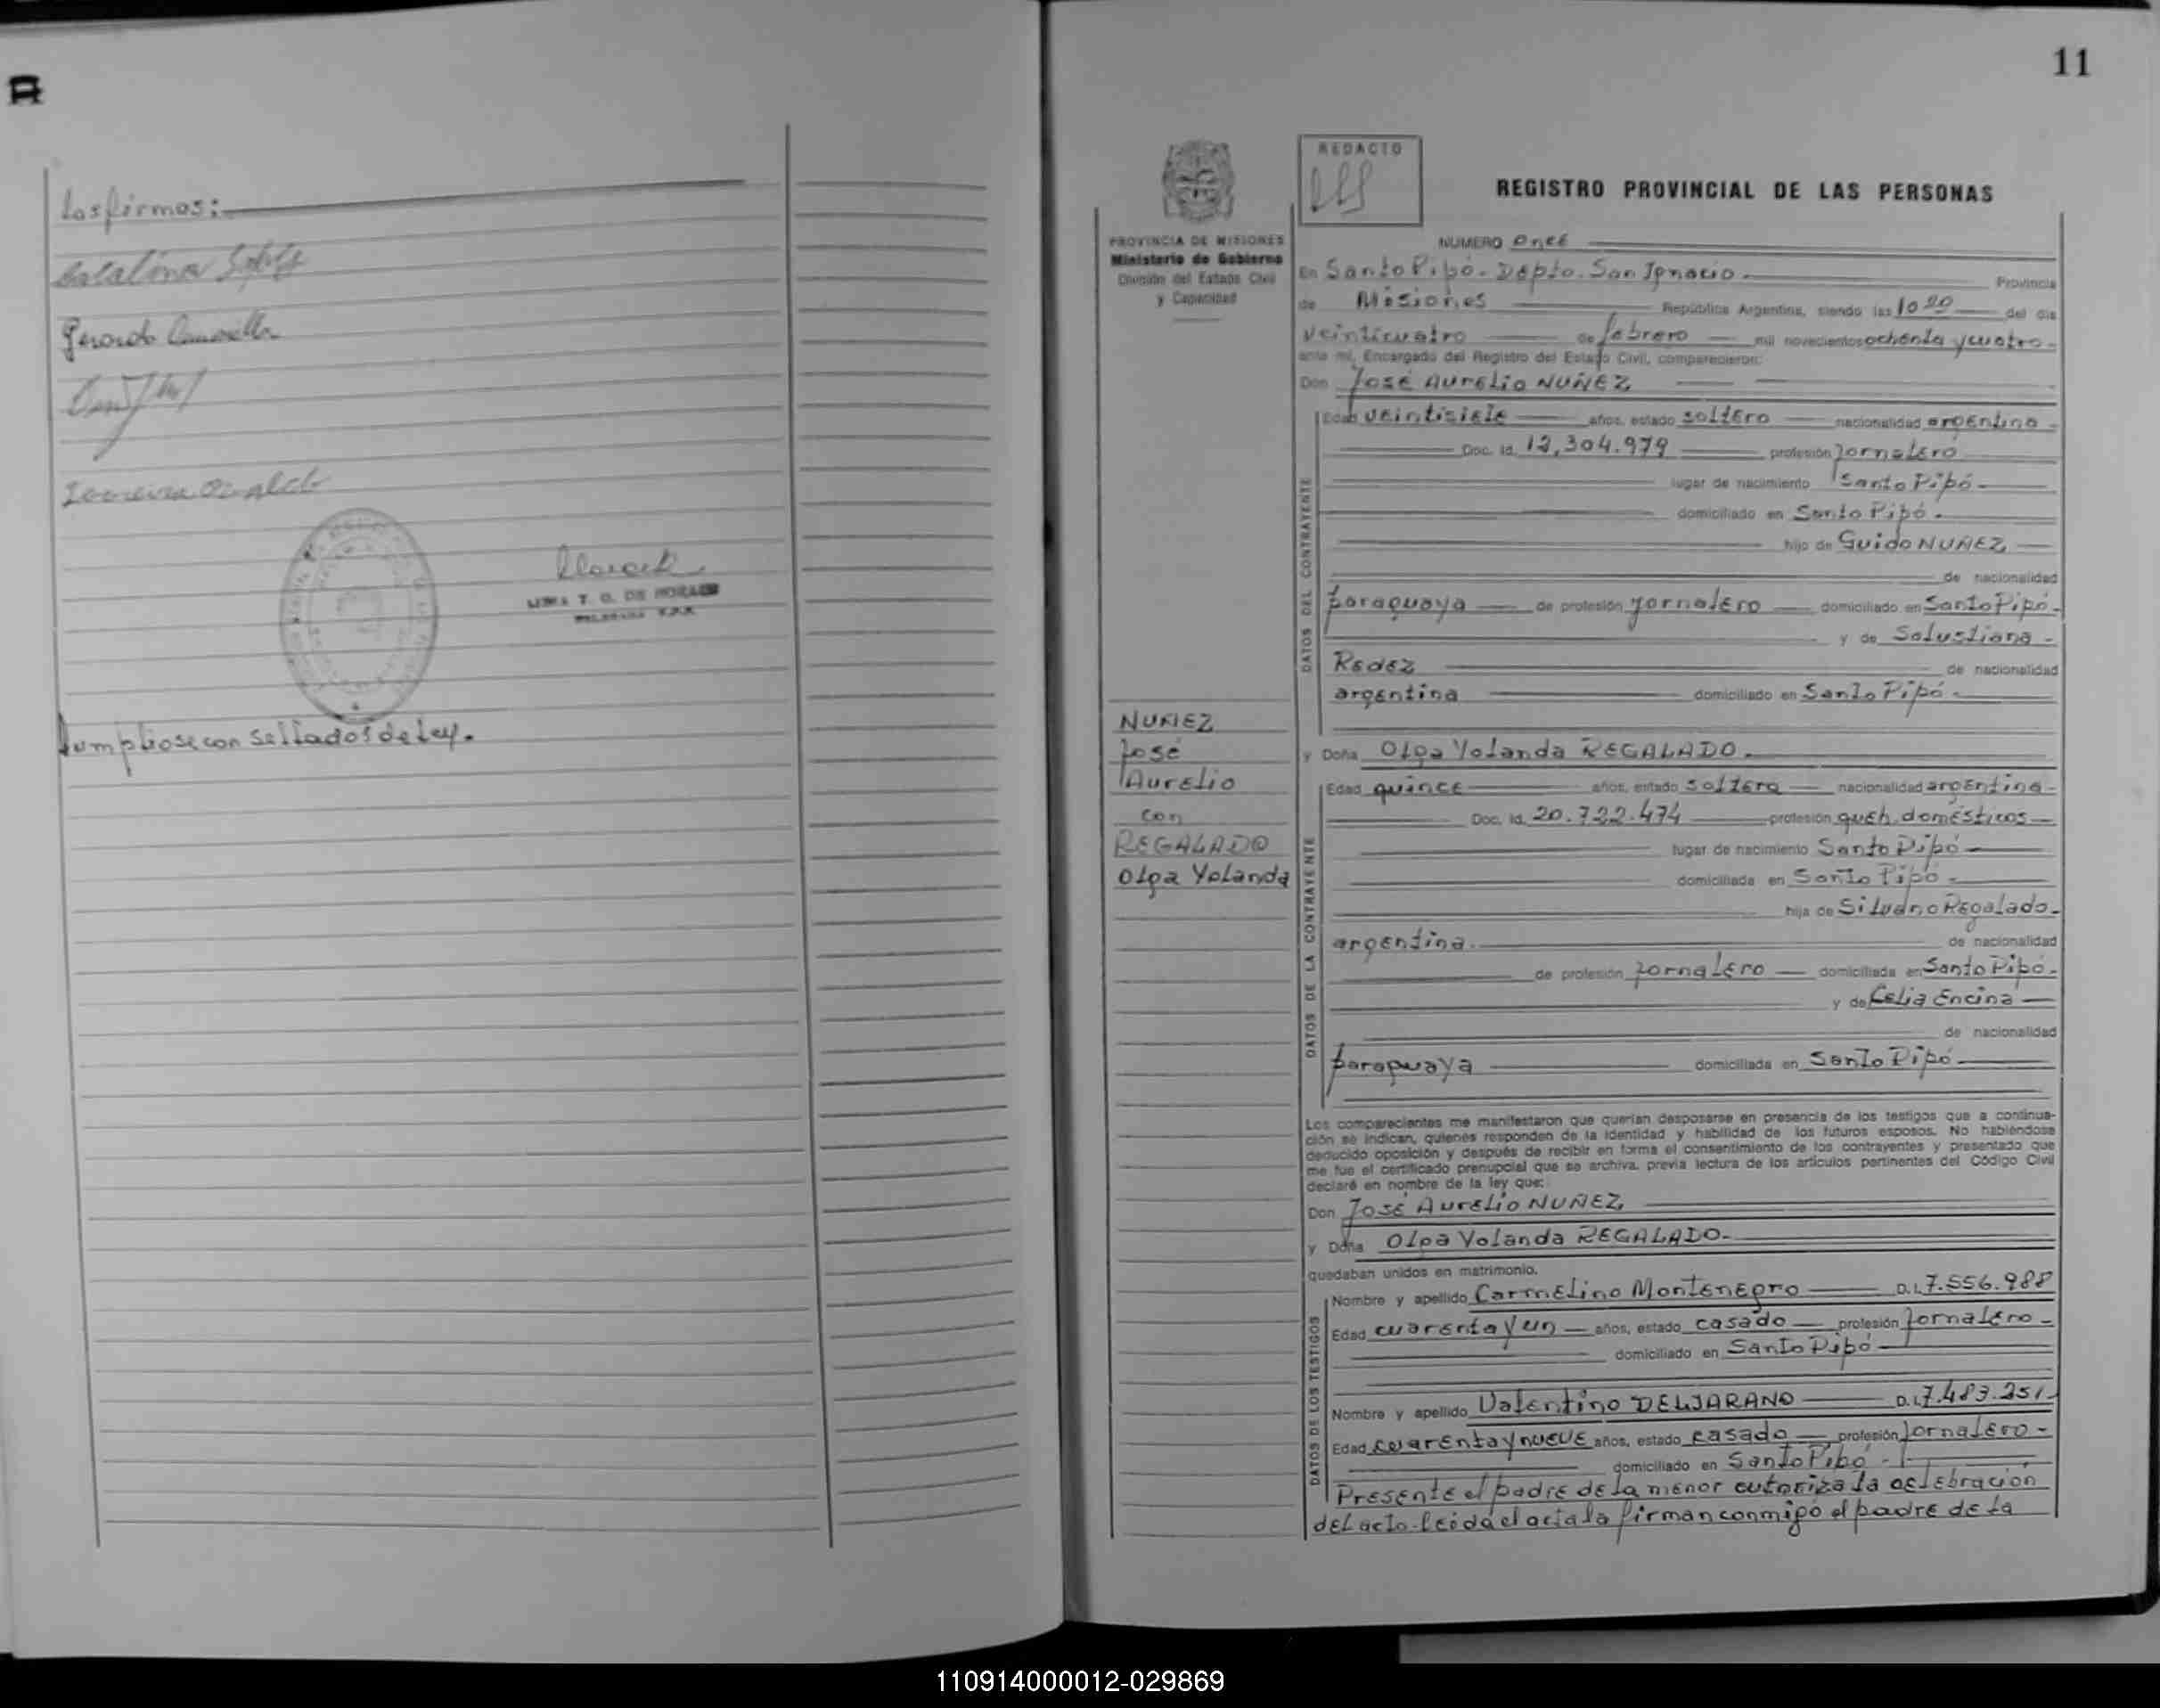 Las firmas:
Gerardo
Cumpliose con sellados de Ley.
11
REDACTO
REGISTRO PROVINCIAL DE LAS PERSONAS
PROVINCIA DE MISIONES
Ministerio de Gobierno
División del Estado Civil
y Capacidad
NUMERO once
En Santo Pipó. Depto. San Ignacio. Provincia
de Misiones República Argentina, siendo las 10 00 del día
veinticuatro de febrero mil novecientos ochenta y cuatro
ante mí, Encargado del Registro del Estado Civil, comparecieron:
Don José Aurelio NUÑEZ
DATOS DEL CONTRAYENTE
Edad veintisiete años, estado soltero nacionalidad argentina
Doc. Id. 12.304.979 profesión Jornalero
lugar de nacimiento Santo Pipó
domiciliado en Santo Pipó.
hijo de Guido NUÑEZ
de nacionalidad
paraguaya de profesión Jornalero domiciliado en Santo Pipó
y de Salustiana
Redez de nacionalidad
argentina domiciliado en Santo Pipó
NUÑEZ
José
Aurelio
con
REGALADO
Olga Yolanda
y Doña Olga Yolanda REGALADO.
DATOS DE LA CONTRAYENTE
Edad quince años, estado soltera nacionalidad argentina
Doc. Id. 20.722.474 profesión queh. domésticos
lugar de nacimiento Santo Pipó
domiciliada en Santo Pipó
hija de Silvano Regalado
argentina. de nacionalidad
de profesión Jornalero domiciliada en Santo Pipó
y de Celia Encina
de nacionalidad
paraguaya domiciliada en Santo Pipó
Los comparecientes me manifestaron que querían desposarse en presencia de los testigos que a continua-
ción se indican, quienes responden de la identidad y habilidad de los futuros esposos. No habiéndose
deducido oposición y después de recibir en forma el consentimiento de los contrayentes y presentado que
me fue el certificado prenupcial que se archiva, previa lectura de los artículos pertinentes del Código Civil
declaré en nombre de la ley que:
Don José Aurelio NUÑEZ
y Doña Olga Yolanda REGALADO
quedaban unidos en matrimonio.
DATOS DE LOS TESTIGOS
Nombre y apellido Carmelino Montenegro D.I. 7.556.988
Edad cuarenta y un años, estado casado profesión Jornalero
domiciliado en Santo Pipó
Nombre y apellido Valentino DELJARANO D.I. 7.483.251
Edad cuarenta y nueve años, estado casado profesión Jornalero
domiciliado en Santo Pipó
Presente el padre de la menor autoriza la celebración
del acto. Leída el acta la firman conmigo el padre de la
110914000012-029869